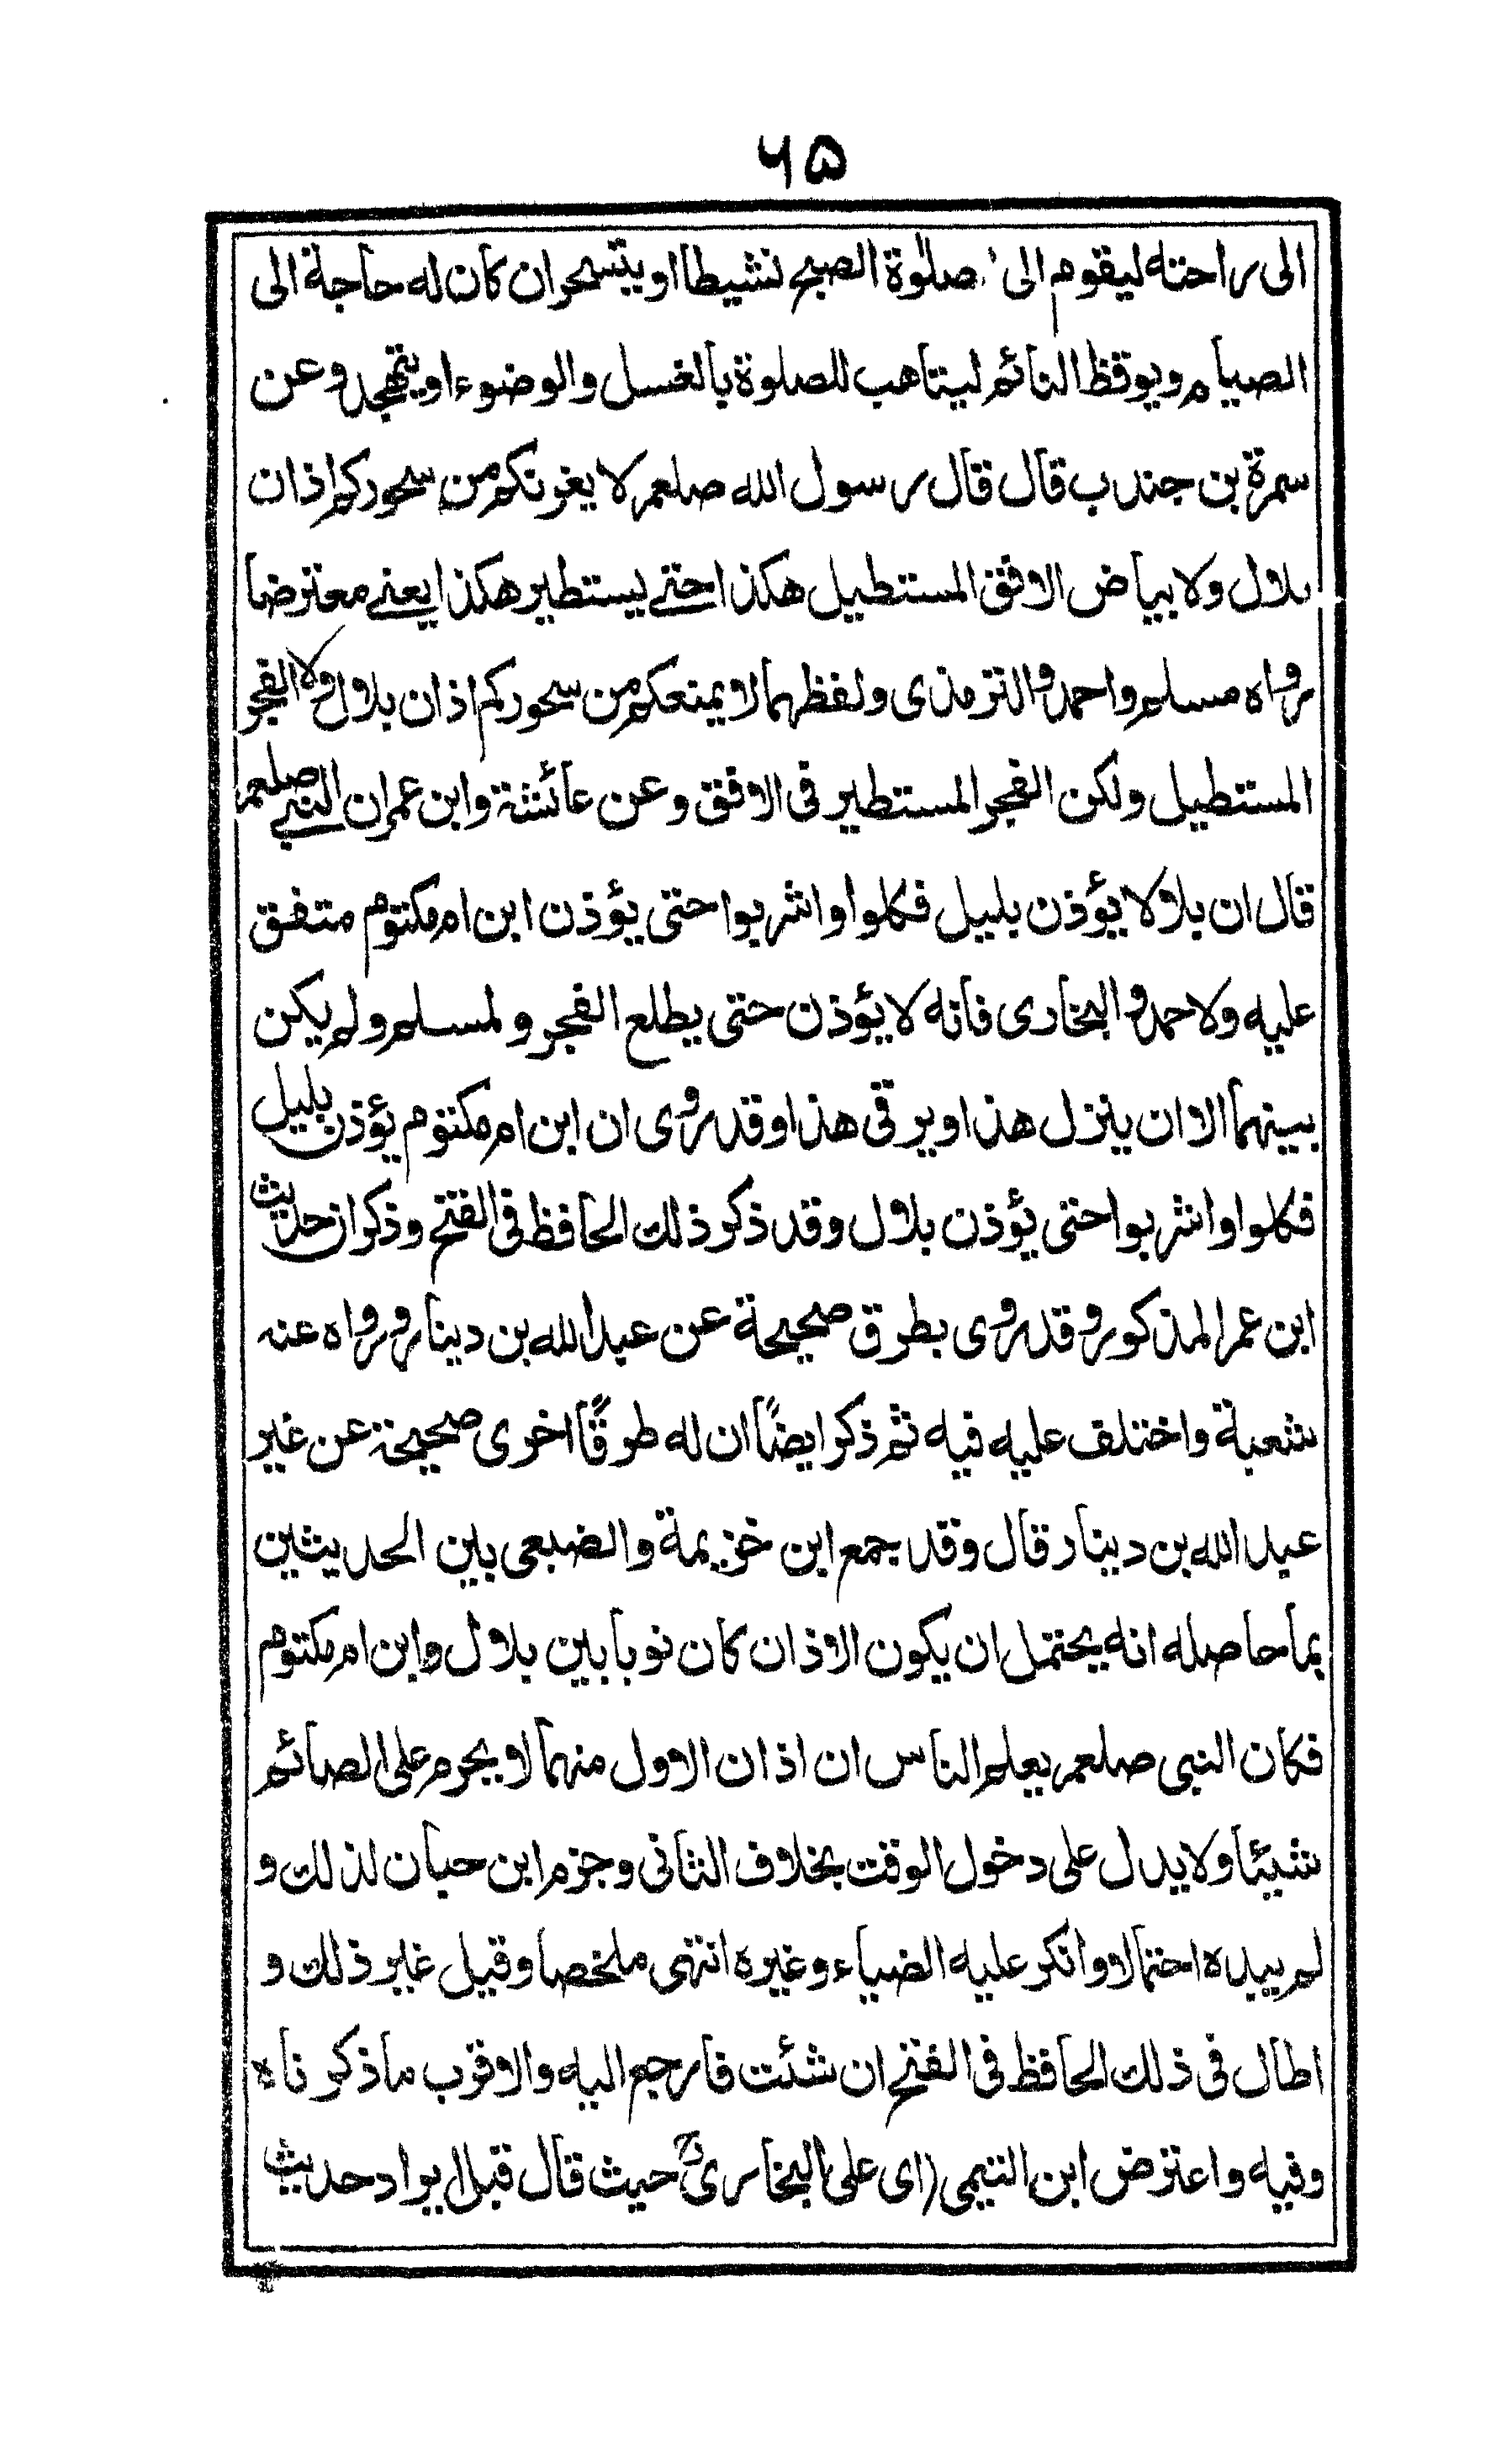 ۶۵
الى راحته ليقوم الى صلوة الصبح نشيطا او يتسحران كان له حاجة الى
الصيام ويوقظ النائم ليتاهب للصلوة بالغسل والوضوء او يتهجد وعن
سمرة بن جندب قال قال رسول الله صلعم لا يغرنكم من سحوركم اذان
بلال ولا بياض الافق المستطيل هكذا حتى يستطير هكذا يعنى معترضا
رواه مسلم واحمد والترمذى ولفظهما لا يمنعكم من سحوركم اذان بلال ولا الفجر
المستطيل ولكن الفجر المستطير فى الافق وعن عائشة وابن عمران النبى صلعم
قال ان بلالا يؤذن بليل فكلوا واشربوا حتى يؤذن ابن ام مكتوم متفق
عليه ولاحمد والبخارى فانه لا يؤذن حتى يطلع الفجر ولمسلم ولم يكن
بينهما الا ان ينزل هذا ويرقى هذا وقد روى ان ابن ام مكتوم يؤذن بليل
فكلوا واشربوا حتى يؤذن بلال وقد ذكر ذلك الحافظ فى الفتح وذكر ان حديث
ابن عمر المذكور وقد روى بطرق صحيحة عن عبد الله بن دينار ورواه عنه
شعبة واختلف عليه فيه ثم ذكر ايضًا ان له طرقًا اخرى صحيحة عن غير
عبد الله بن دينار قال وقد جمع ابن خزيمة والضبعى بين الحديثين
بما حاصله انه يحتمل ان يكون الاذان كان نوبا بين بلال وابن ام مكتوم
فكان النبى صلعم يعلم الناس ان اذان الاول منهما لا يحرم على الصائم
شيئا ولا يدل على دخول الوقت بخلاف الثانى وجزم ابن حبان لذلك و
لم يبده احتمالا وانكر عليه الضياء وغيره انتهى ملخصا وقيل غير ذلك و
اطال فى ذلك الحافظ فى الفتح ان شئت فارجع اليه والاقرب ما ذكرناه
وفيه واعترض ابن التيمى (اى على البخارىؒ) حيث قال قبل ايراد حديث